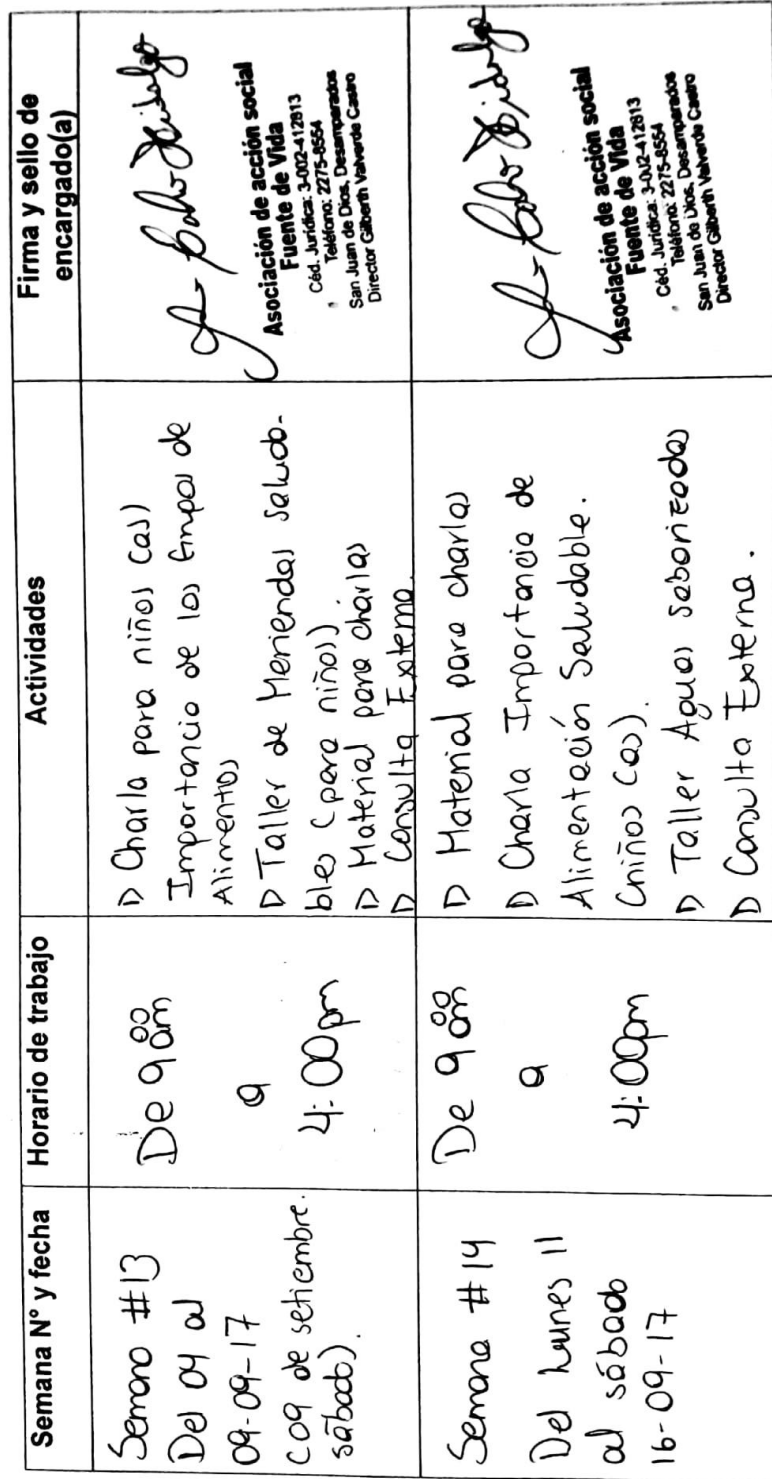 Semana N° y fecha
Horario de trabajo
Actividades
Firma y sello de
encargado(a)
Semana #13
Del 04 al
09-09-17
(09 de setiembre.
sábado).
De 9:00 am
a
4:00pm
▷ Charla para niños (as)
Importancia de los Grupos de
Alimentos
▷ Taller de Meriendas Saluda-
bles (para niños)
▷ Material para charlas
▷ Consulta Externa.
Asociación de acción social
Fuente de Vida
Céd. Jurídica: 3-002-412613
Teléfono: 2275-8554
San Juan de Dios, Desamparados
Director Gilberth Valverde Castro
Semana #14
Del Lunes 11
al sábado
16-09-17
De 9:00 am
a
4:00pm
▷ Material para charlas
▷ Charla Importancia de
Alimentación Saludable.
(niños (as).
▷ Taller Aguas saborizadas
▷ Consulta Externa.
Asociación de acción social
Fuente de Vida
Céd. Jurídica: 3-002-412613
Teléfono: 2275-8554
San Juan de Dios, Desamparados
Director Gilberth Valverde Castro